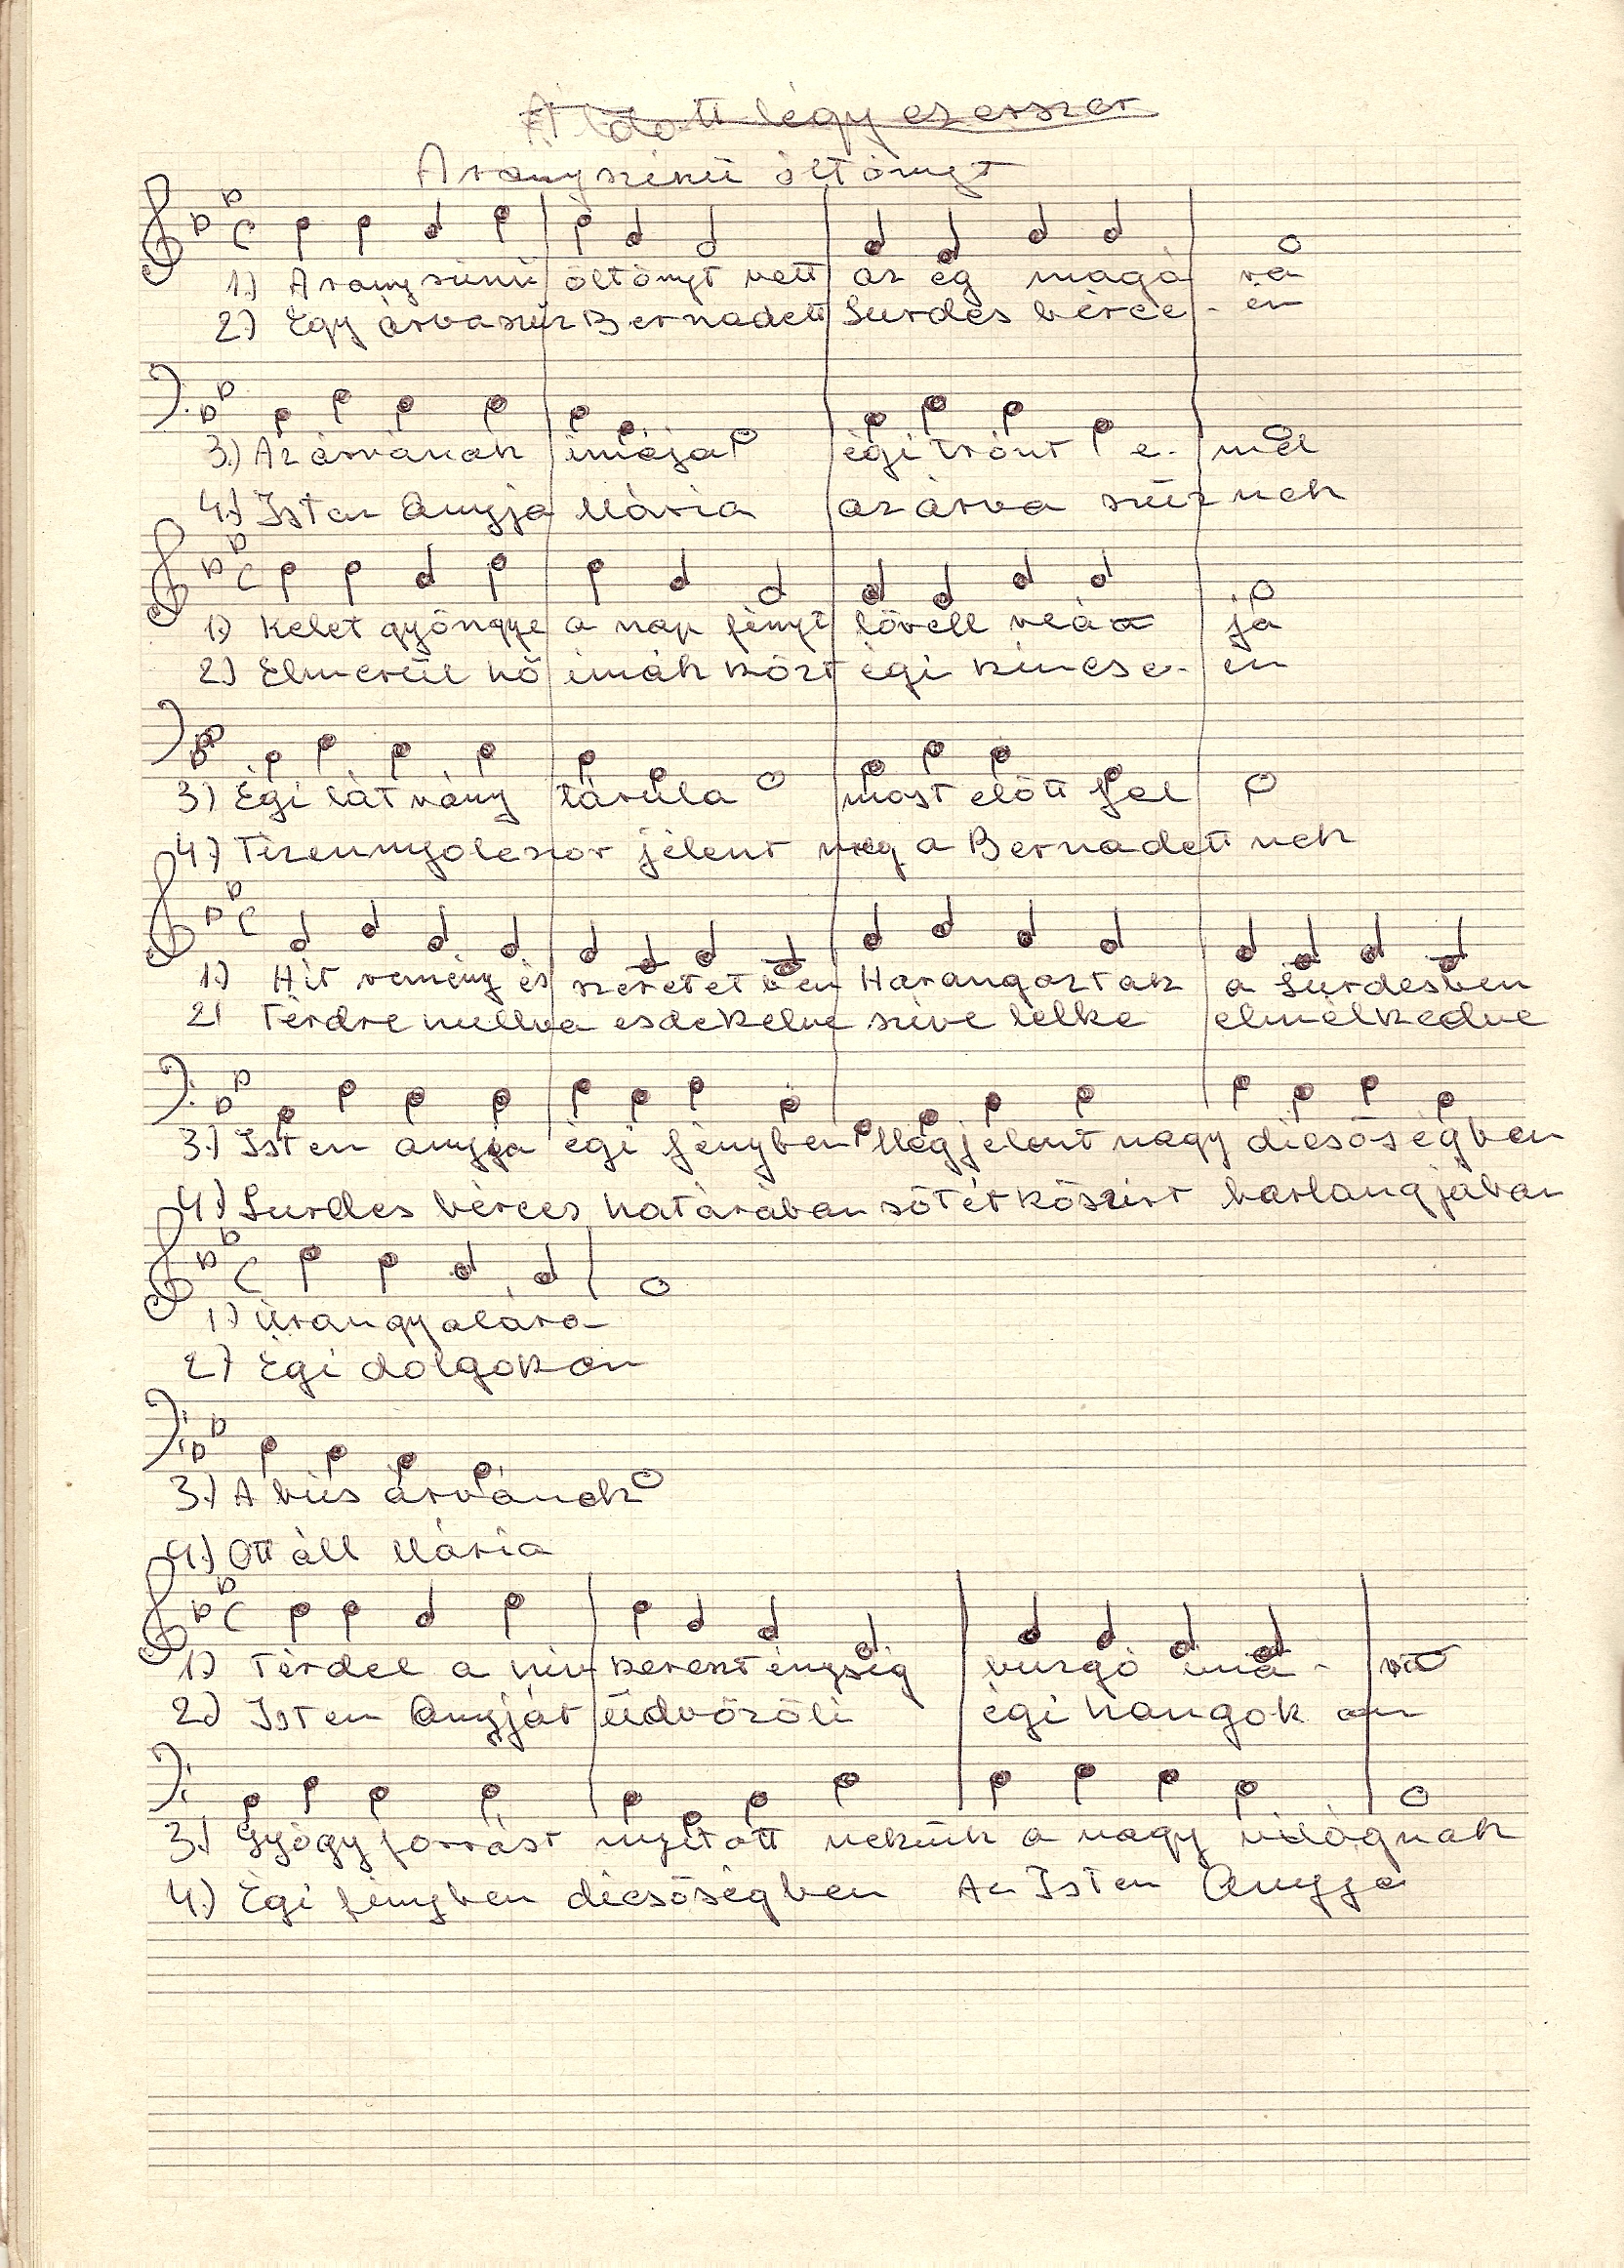 Áldott légy ezerszer
Aranyszinü öltönyt
1.) Aranyszinü öltönyt vett az ég magá ra
2.) Egy árvaszüz Bernadett Lurdes bérce - én
3.) Az árvának imája égi trónt e. mel
4.) Isten Anyja Mária az árva szüz nek
1.) Kelet gyöngye a nap fényt lövell reá ja
2.) Elmerül hö imák közt égi kincse - en
3.) Égi látvány tárula most elött fel
4.) Tizennyolcszor jelent meg a Bernadett nek
1.) Hit remény és szeretetben Harangoztak a Lurdesben
2.) Térdre hullva esdekelve szive lelke elmélkedve
3.) Isten anyja égi fényben Megjelent nagy dicsöségben
4.) Lurdes bérces határában sötét köszirt barlangjában
1.) Úrangyalára
2.) Égi dolgokon
3.) A bús árvának
4.) Ott áll Mária
1.) Térdel a hiv kereszténység buzgó imá -
2.) Isten Anyját üdvözöli égi hangok on
3.) Gyógyforrást nyitott nekünk a nagy világnak
4.) Égi fényben dicsöségben Az Isten Anyja